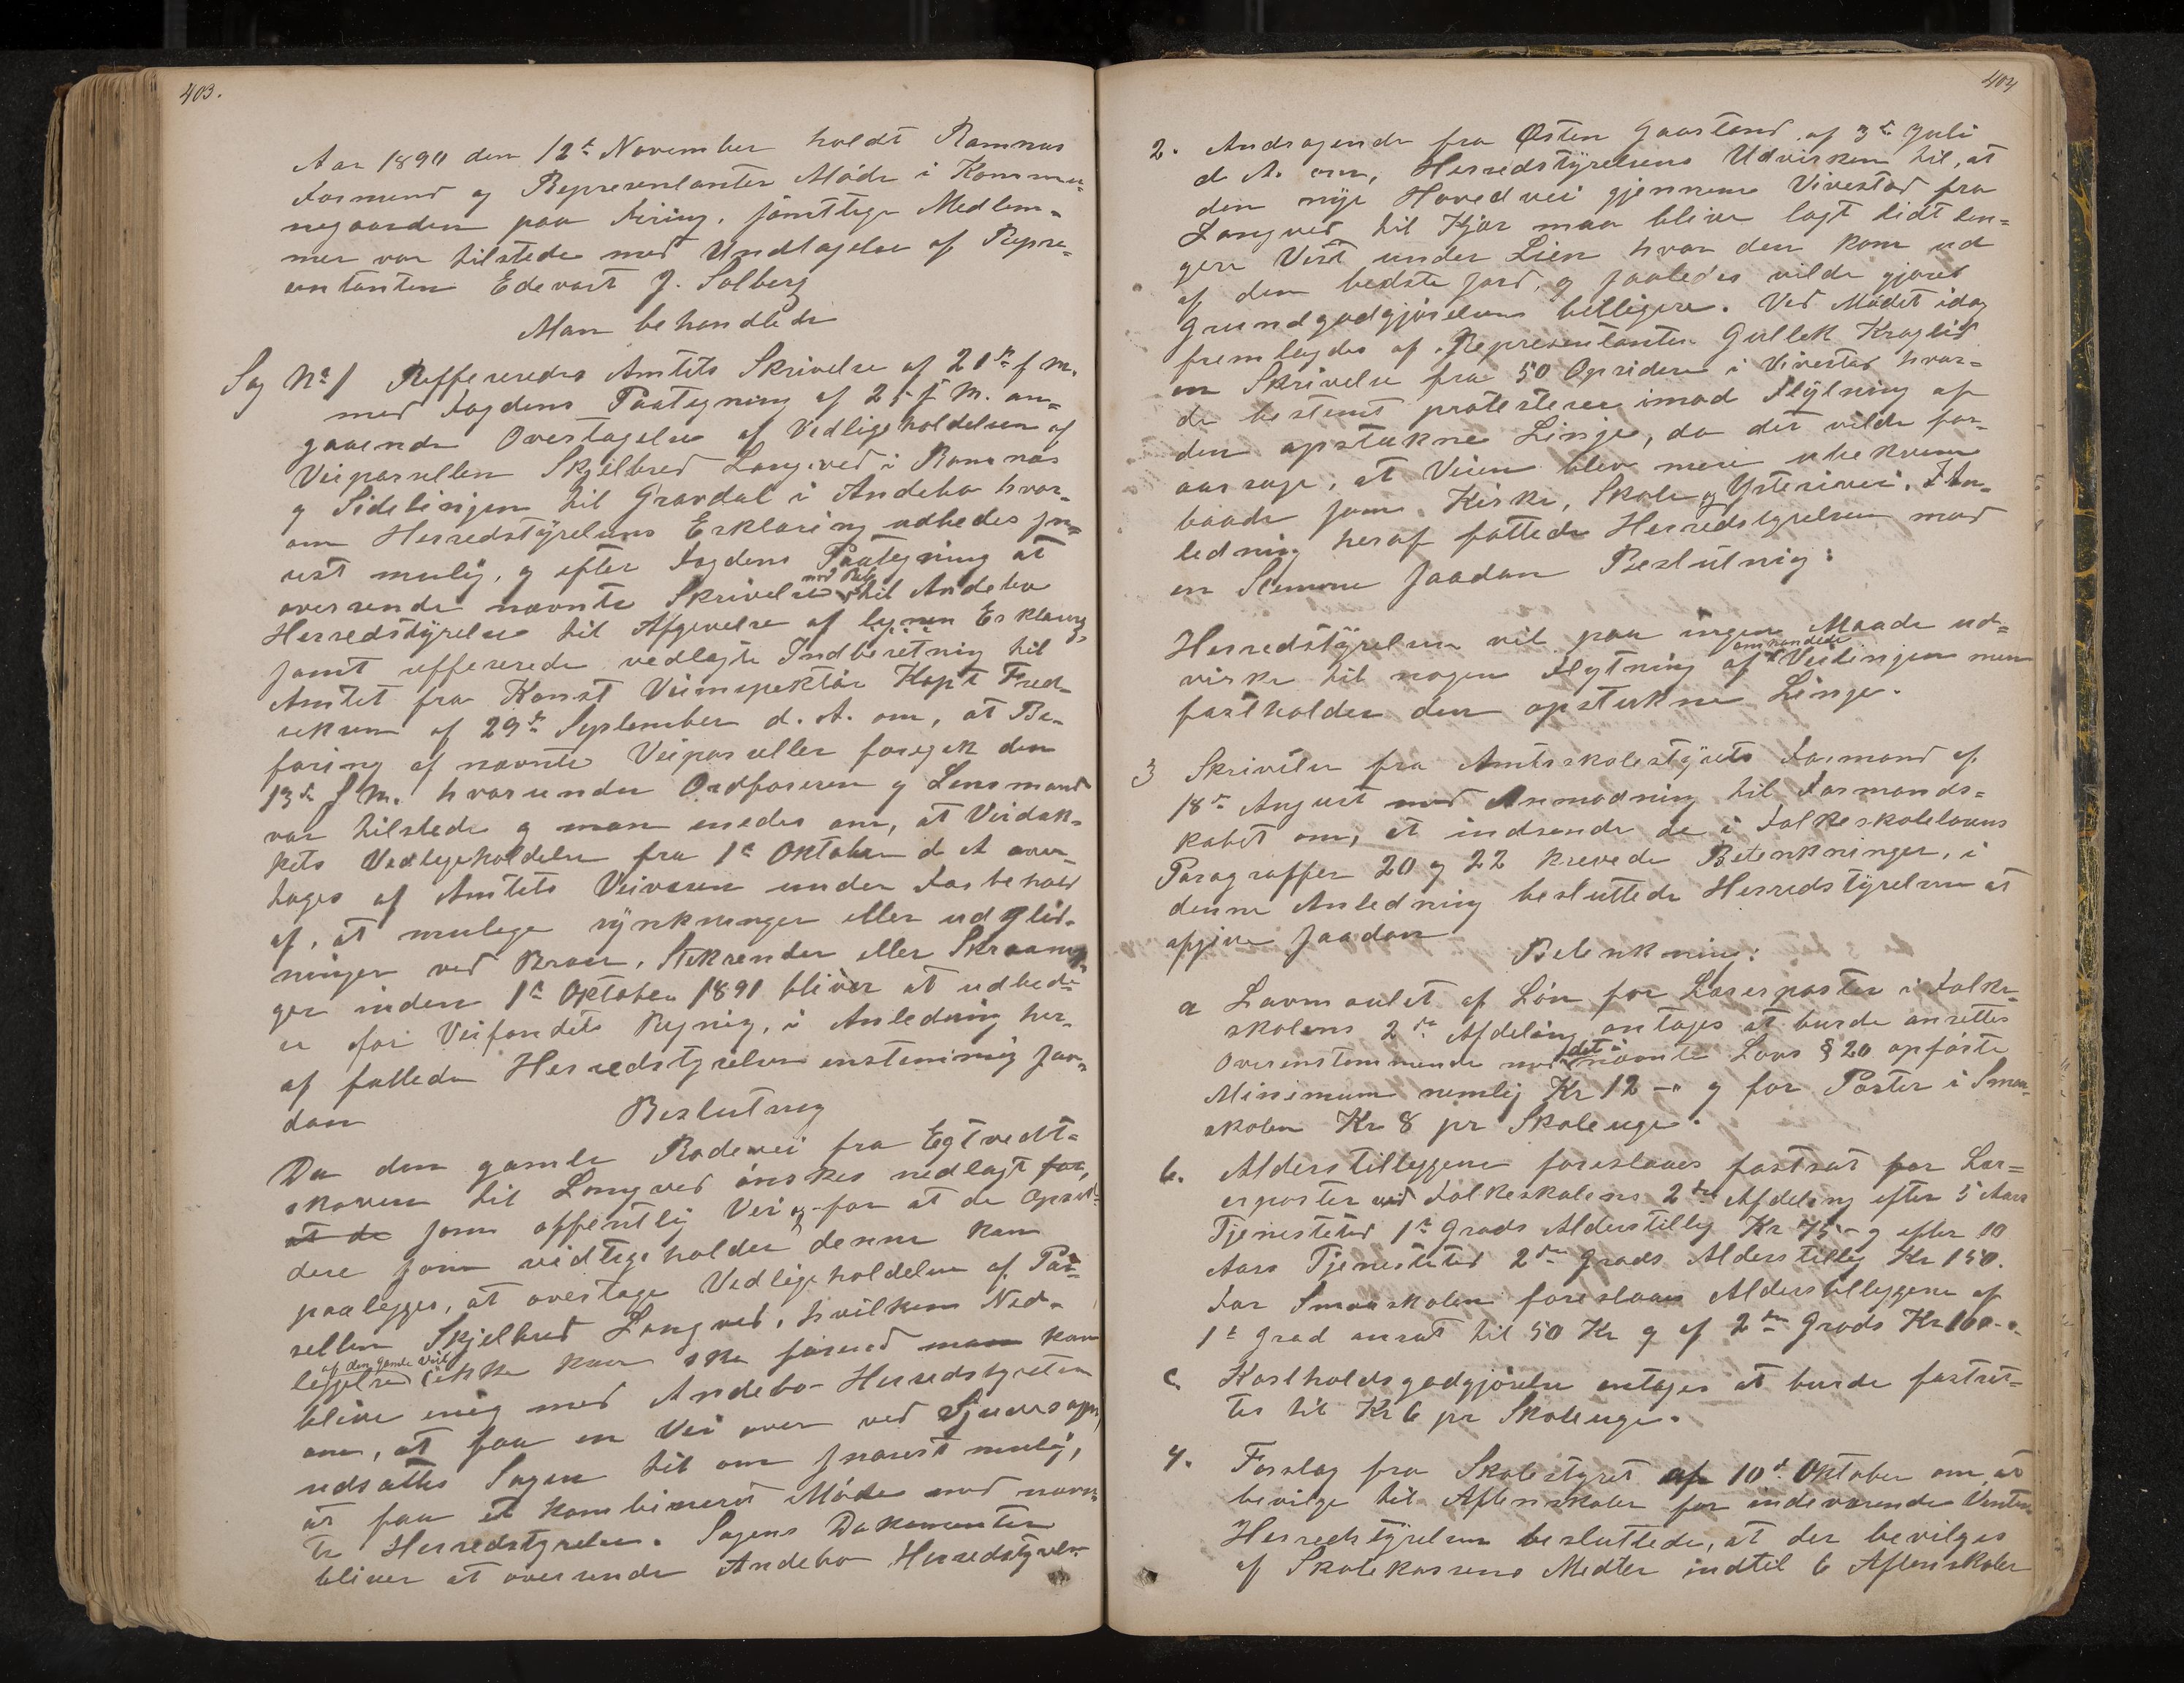 403.
Aar 1890 den 12te November holdt Ramnæs
Formend og Representanter Møde i Kommu-
negaarden paa Firing. samtlige Medlem-
mer var tilstede med Undtagelse af Repre-
entanten Edevart J. Solberg
Man behandlede
Sag No 1 Reffereredes Amtets Skrivelse af 21de f M.
med Fogdens Paategning af 25 f M. an-
gaaende Overtagelse af Vedligeholdelsen af
Veiparsellen Skjelbred Langved i Ramnæs
og Sidelinjen til Gravdal i Andebo hvor-
om Herredstyrelsens Erklæring udbedes sna-
rest mulig, og efter Fogdens Paategning at
oversende nævnte Skrivelse med Bilag til Andebo
Herredstyrelse til Afgivelse af lignen Erklæring
samt reffererede vedlagte Indberetning til
Amtet fra Konst Veiinspektør Kapt Fred-
riksen af 29de September d. A. om, at Be-
faring af nævnte Veiparseller foregik den
13de s M. hvorunder Ordføreren og Lensmand
var tilstede og man enedes om, at Veidæk-
kets Vedligeholdelse fra 1ste Oktober d A over-
tages af Amtets Veivæsen under Forbehold
af, at mulige synkninger eller udglid-
ninger ved Broer, Stikrender eller Skraanin-
ger inden 1ste Oktober 1891 bliver at udbed-
re for Veifondets Regning, i Anledning her-
af fattede Herredstyrelsen enstemmig saa-
dan Beslutning
Da den gamle Rodevei fra Egtvedt-
skoven til Langved ønskes nedlagt for,
at de som offentlig Vei og for at de Opsid-
dere som vedligeholder denne kan
paalegges, at overtage Vedligeholdelsen af Par-
sellen Skjelbred Langved, hvilken Ned-
leggelse af den gamle Vei ikke kan ske førend man kan
blive enig med Andebo Herredstyrelse
om, at faa en Vei over ved
udsattes Sagen til om snarest mulig,
at faa et kombineret Møde med nævn-
te Herredstyrelse. Sagens Dokumenter
bliver at oversende Andebo Herredstyrelse
404
2. Andragende fra Østen Gaasland af 3de Juli
d A. om, Herredstyrelsens Udvirken til, at
den nye Hovedvei gjennem Vivestad fra
Langved til Kjær maa blive lagt lidt len-
gere Vest under Lien hvor den kom ud
af den bedste Jord, og saaledes vilde gjøres
Grundgodgjørelsen billigere. Ved Mødet idag
fremlagdes af Representanten Gullek Kraglid
en Skrivelse fra 50 Opsidere i Vivestad hvor-
de bestemt protesterer imod Flytning af
den opstukne Linje, da det vilde for-
aarsage, at Veien blev mere ubekvem
baade som Kirke, Skole og Ysterivei. I An-
ledning heraf fattede Herredstyrelsen mod
en Stemme saadan Beslutnig:
Herredstyrelsen vil paa ingen Maade ud-
virke til nogen Flytning af omhandlede Veilinjen men
fastholder den opstukne Linge.
3 Skrivelse fra Amtsskolestyrets Formand af
18de August med Anmodning til Formands-
kabet om, at indsende de i Folkeskolelovens
Paragraffer 20 og 22 krevede Betenkninger, i
denne Anledning besluttede Herredstyrelsen at
afgive saadan
Betenkning:
a Lavmaalet af Løn for Lærerposter i Folke-
skolens 2den Afdeling antages at burde ansettes
Overenstemmende med det i nævnte Lovs § 20 opførte
Minimum nemlig Kr 12 -" og for Poster i Smaa-
skolen Kr 8 pr Skoleuge.
b. Alderstilleggene foreslaaes fastsat for Lær-
erposter ved Folkeskolens 2den Afdeling efter 5 Aars
Tjenestetid 1ste Grads Alderstilleg Kr 75- og efter 10
Aars Tjenestetid 2den Grads Alderstilleg Kr 150.
For Smaaskolen foreslaaes Alderstilleggene af
1ste Grad ansat til 50 Kr og af 2den Grads Kr 100-"-
c Kostholdsgodgjørelse antages at burde fastset-
tes til Kr 6 pr Skoleuge.
4. Forslag fra Skolestyret af 10de Oktober om, at
bevilge til Aftenskoler for indeværende Vinter
Herredstyrelsen besluttede, at der bevilges
af Skolekassens Midler indtil 6 Aftenskoler